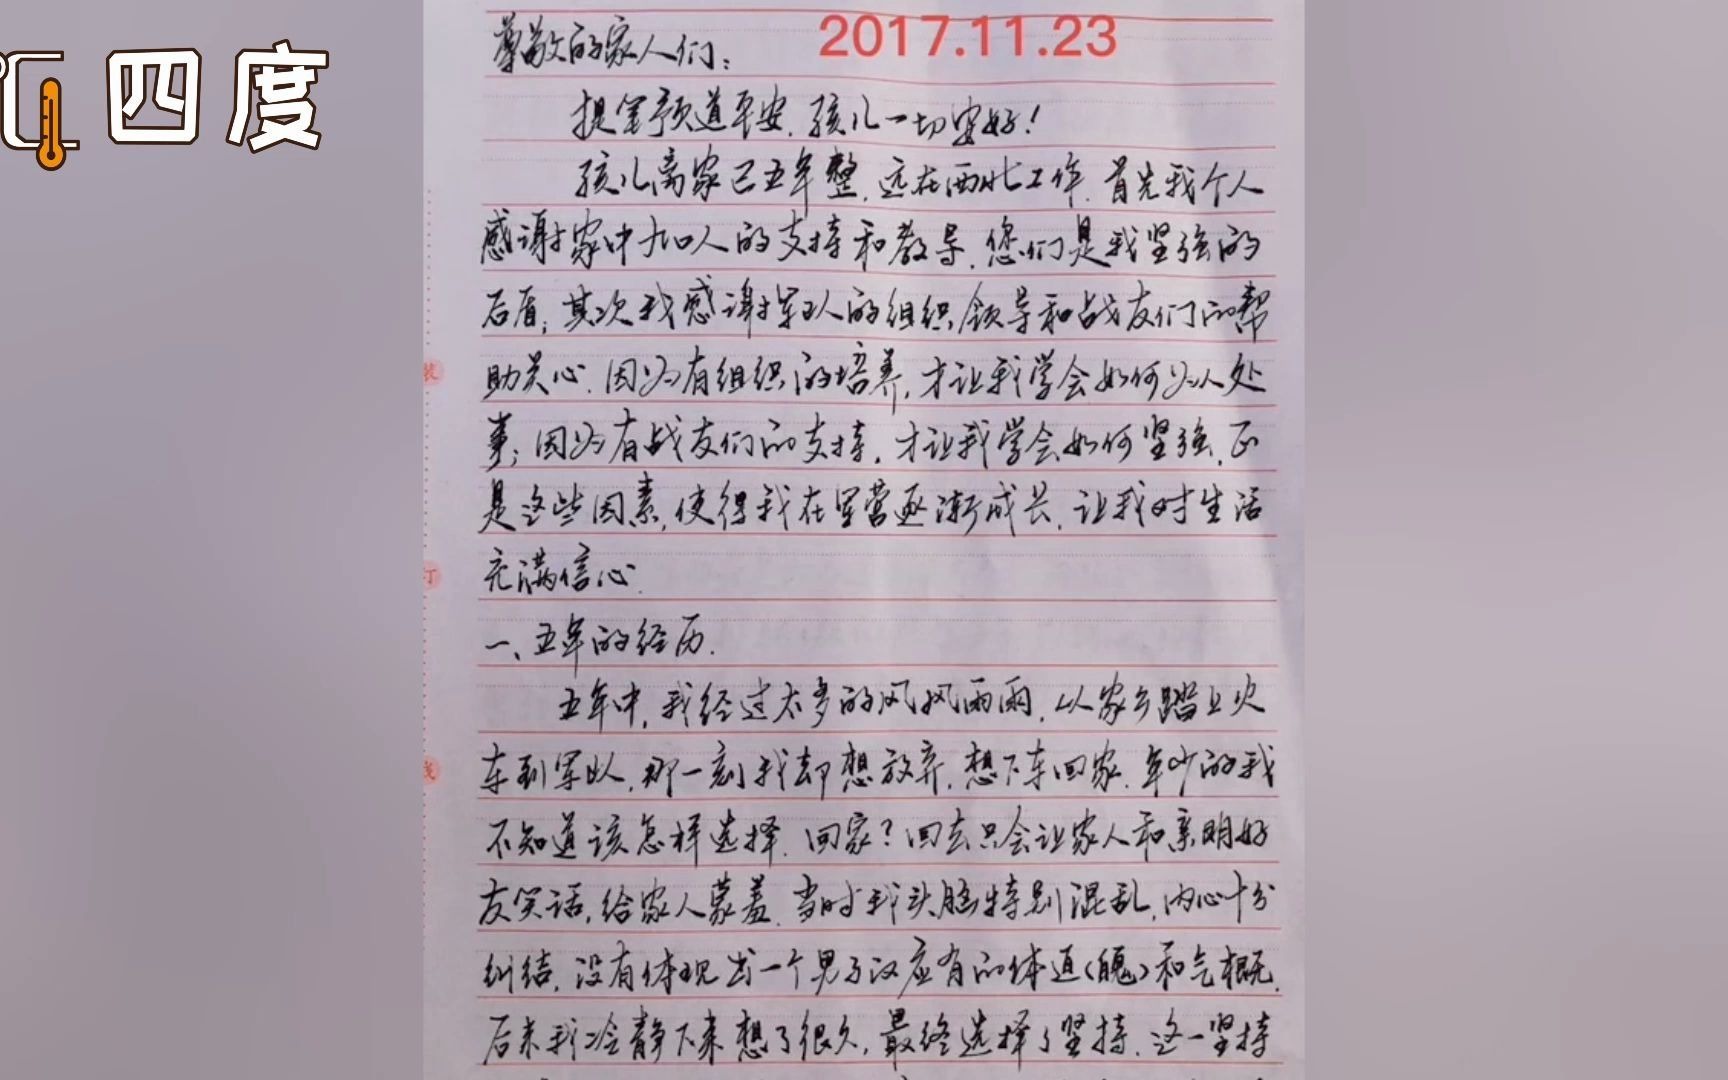 ℃ 四度
2017.11.23
尊敬的家人们：
提笔预道平安，孩儿一切安好！
孩儿离家已五年整，远在西北工作，首先我个人
感谢家中九口人的支持和教导，您们是我坚强的
后盾；其次我感谢军队的组织、领导和战友们的帮
助关心，因为有组织的培养，才让我学会如何为人处
事；因为有战友们的支持，才让我学会如何坚强，正
是这些因素，使得我在军营逐渐成长，让我对生活
充满信心。
一、五年的经历.
五年中，我经过太多的风风雨雨，从家乡踏上火
车到军队，那一刻我却想放弃，想下车回家，年少的我
不知道该怎样选择，回家？回去只会让家人和亲朋好
友笑话，给家人蒙羞，当时我头脑特别混乱，内心十分
纠结，没有体现出一个男子汉应有的体迫（魄）和气概，
后来我冷静下来想了很久，最终选择了坚持，这一坚持
装
订
线